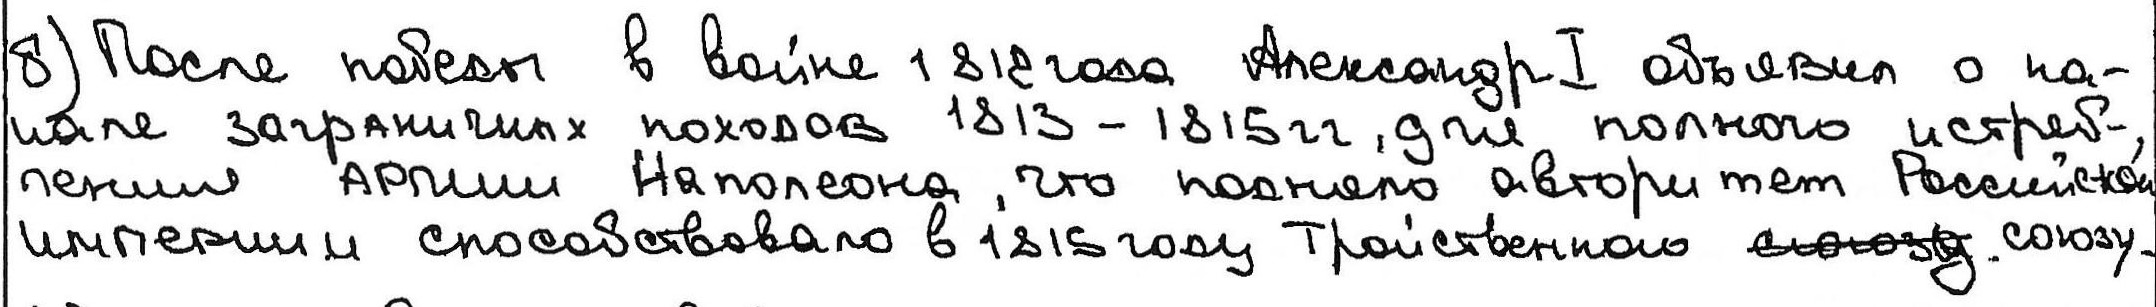 8) После победы в войне 1812 года Александр I объявил о на-
чале заграничных походов 1813-1815 гг, для полного истреб-,
ления Армии Наполеона, что подняло авторитет Российской
империи и способствовало в 1815 году Тройственного союзу. союзу.